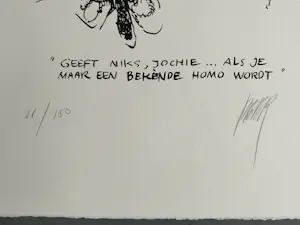 " GEEFT NIKS, JOCHIE ... ALS JE
MAAR EEN BEKENDE HOMO WORDT "
21 / 150